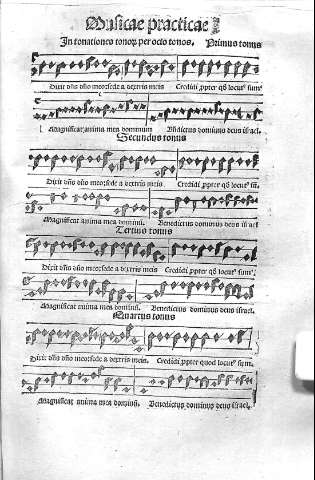 Musicae practicae
In tonationes tonorū per octo tonos. Primus tonus
Dixit dñs dño meo:sede a dextris meis Credidi ꝓpter qđ locut⁹ sum
Magnificat anima mea dominum Bñdictus dominus deus israel.
Secundus tonus
Dixit dñs dño meo:sede a dextris meis Credidi ꝓpter qđ locut⁹ sū.
Magnificat anima mea dominū. Benedictus dominus deus israel
Tertius tonus
Dixit dñs dño meo:sede a dextris meis Credidi ꝓpter qđ locut⁹ sum
Magnificat anima mea dominū. Benedictus dominus deus israel.
Quartus tonus
Dixit dñs dño meo:sede a dextris meis. Credidi ꝓpter quod locut⁹ sum.
Magnificat anima mea dominū. Benedictus dominus deus israel.